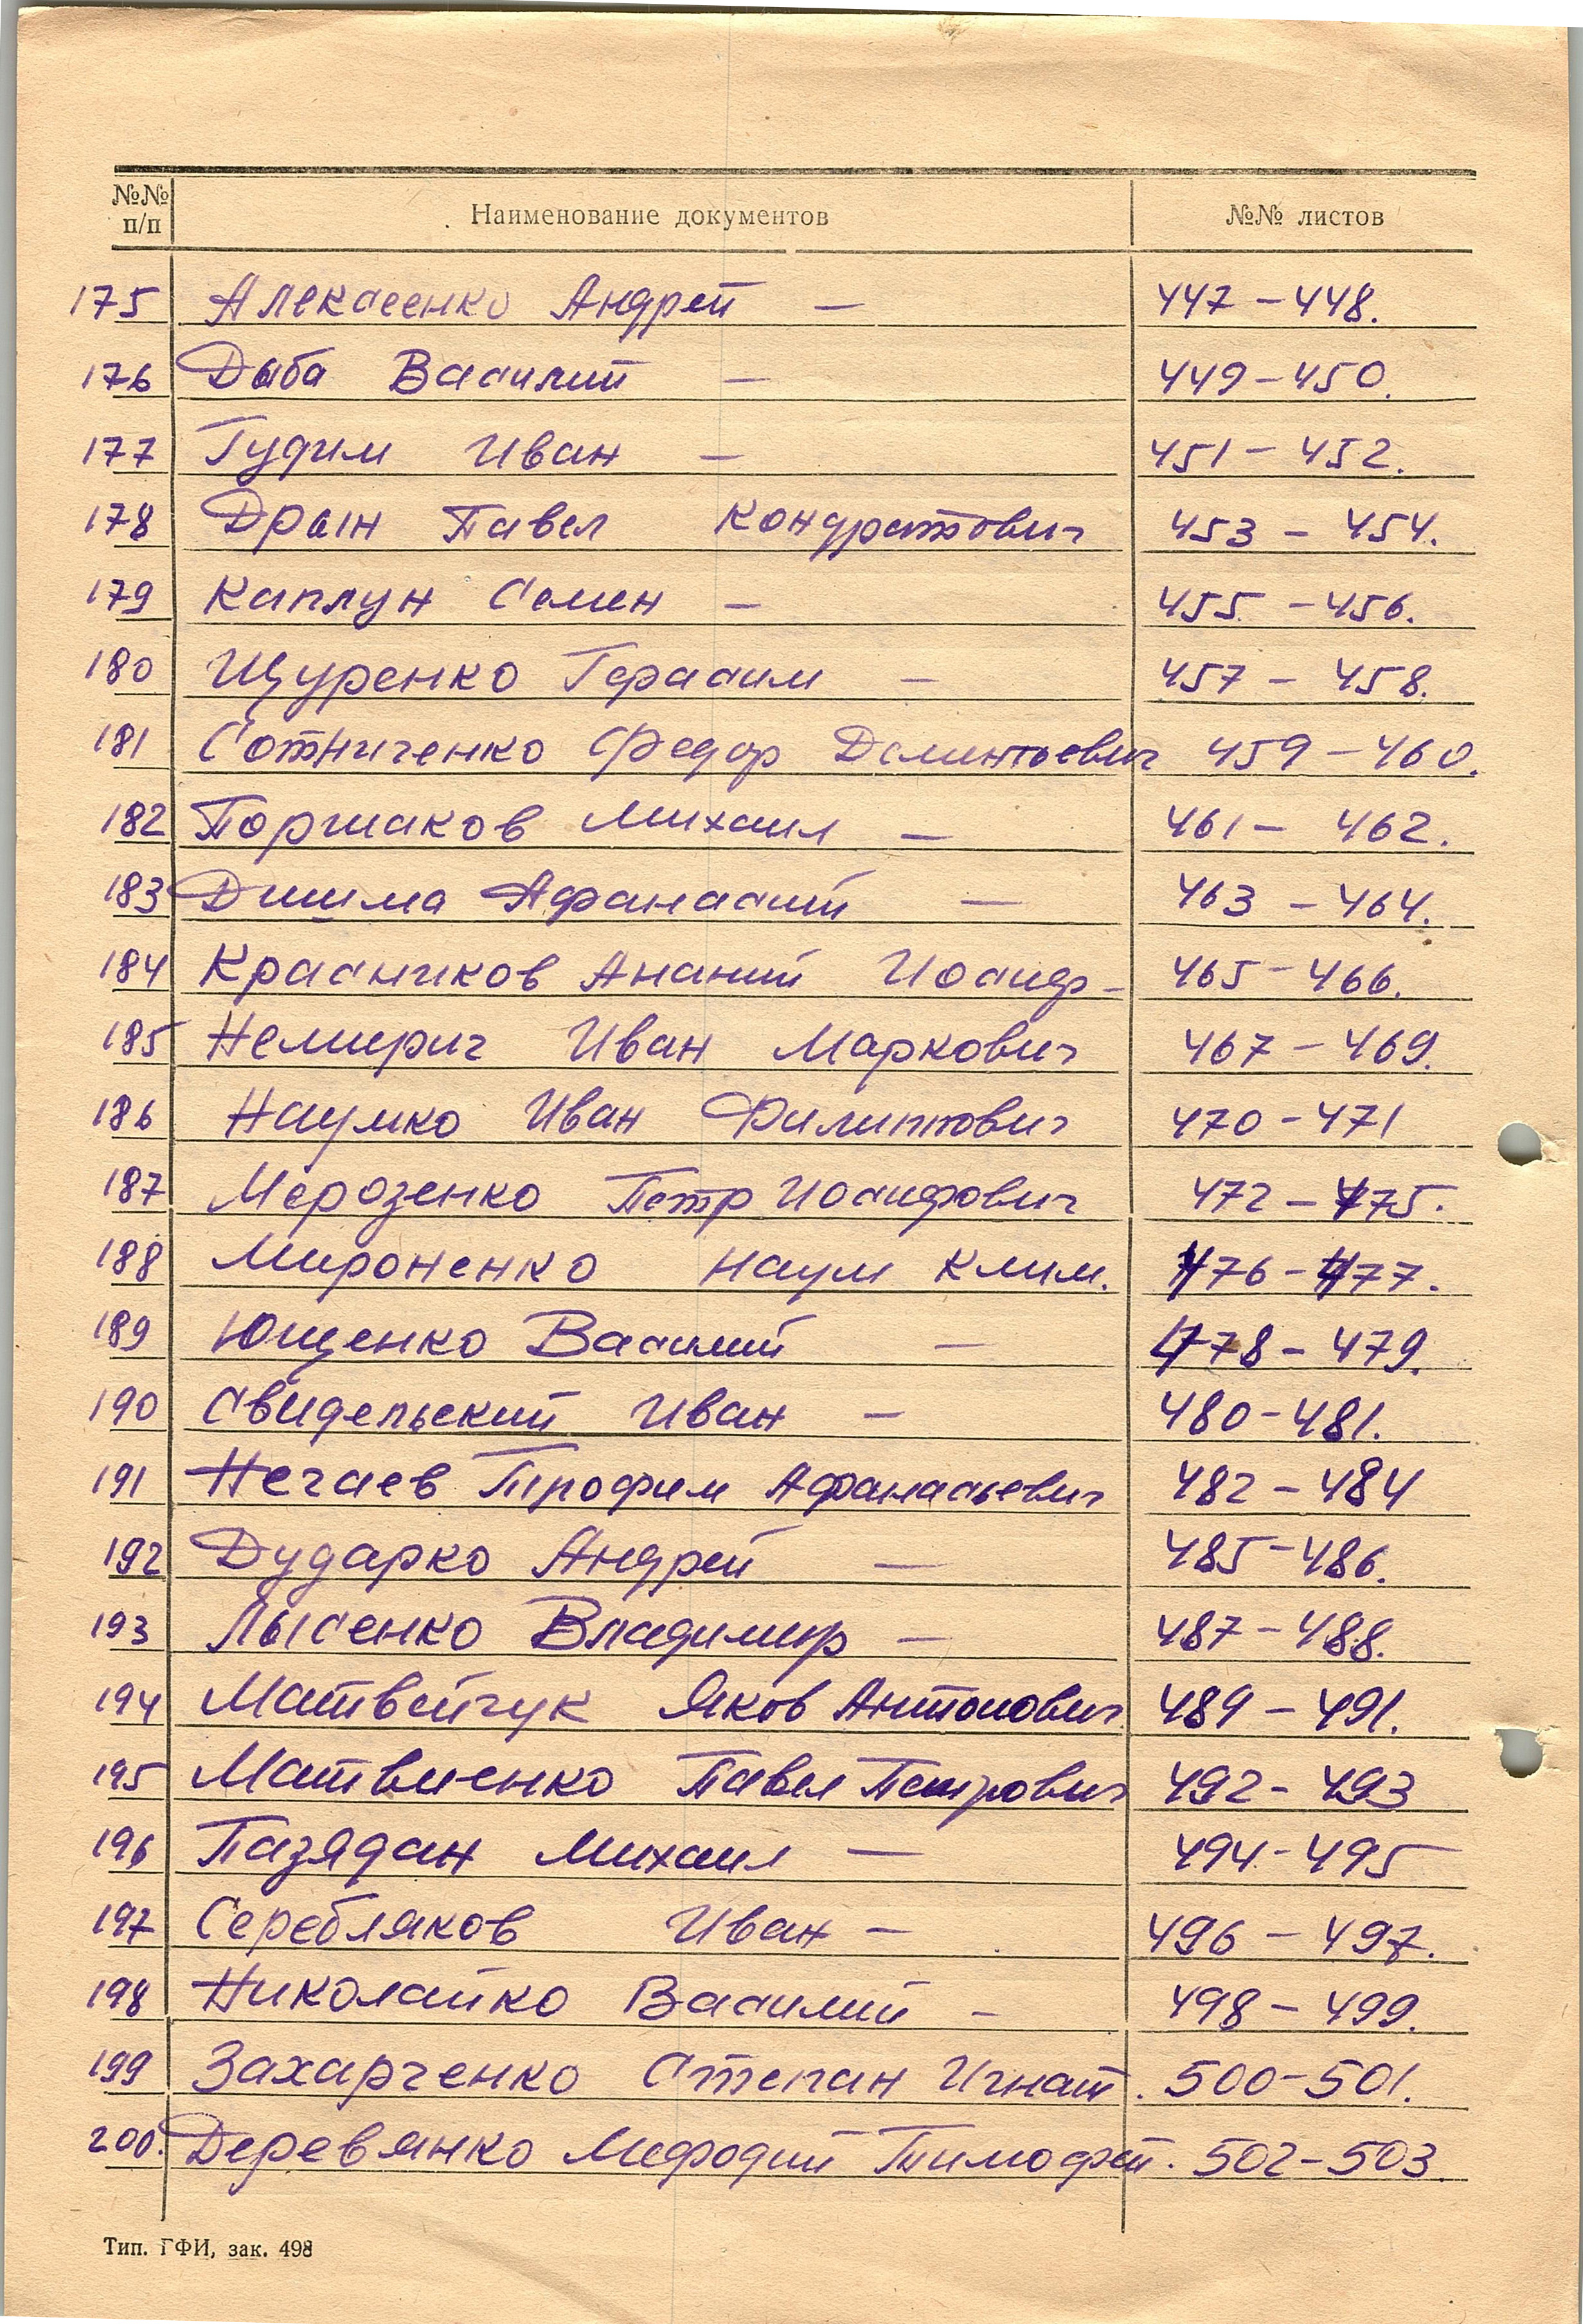 №№ п/п Наименование документов №№ листов
175 Алексеенко Андрей — 447 – 448.
176 Дыба Василий — 449 – 450.
177 Гудим Иван — 451 – 452.
178 Дрын Павел Кондратович 453 – 454.
179 Каплун Семен — 455 – 456.
180 Щуренко Герасим — 457 – 458.
181 Сотниченко Федор Дементьевич 459 – 460.
182 Поршаков Михаил — 461 – 462.
183 Дишма Афанасий — 463 – 464.
184 Красников Ананий Иосиф – 465 – 466.
185 Немирич Иван Маркович 467 – 469.
186 Наумко Иван Филиппович 470 – 471
187 Мерозенко Петр Иосифович 472 – 475.
188 Мироненко Наум Клим. 476 – 477.
189 Ющенко Василий — 478 – 479.
190 Свидельский Иван — 480 – 481.
191 Нечаев Трофим Афанасьевич 482 – 484
192 Дударко Андрей — 485 – 486.
193 Лысенко Владимир — 487 – 488.
194 Матвейчук Яков Антонович 489 – 491.
195 Матвиенко Павел Петрович 492 – 493
196 Пазядан Михаил — 494 – 495
197 Серебляков Иван — 496 – 497.
198 Николайко Василий — 498 – 499.
199 Захарченко Степан Игнат. 500 – 501.
200. Деревянко Мефодий Тимофей. 502 – 503
Тип. ГФИ, зак. 498